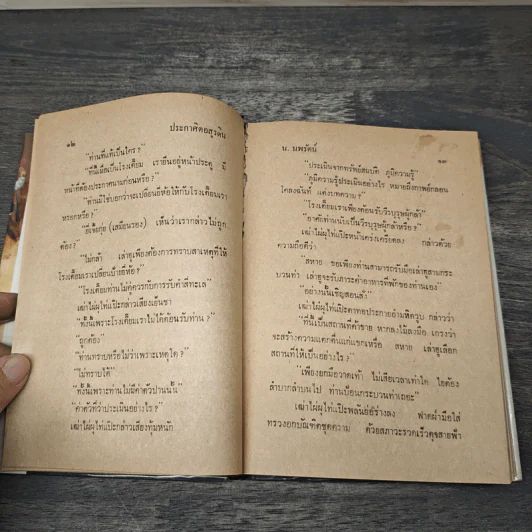 ๑๒
ประกาศิตอสุรดิน
"ท่านที่แท้เป็นใคร?"
"ที่นี้เมื่อเป็นโรงเตี๊ยม เรายืนอยู่หน้าประตู มี
หน้าที่ต้องประกาศนามก่อนหรือ?"
"ท่านมิใช่บอกว่าจะเปลี่ยนยี่ห้อให้กับโรงเตี๊ยมเรา
หรอกหรือ?"
(เสมียนรอง) เห็นว่าเรากล่าวไม่ถูก
ต้อง?
"ไม่กล้า เล่าฮูเพียงต้องการทราบสาเหตุที่ให้
โรงเตี๊ยมเราเปลี่ยนป้ายยี่ห้อ?"
"โรงเตี๊ยมท่านไม่คู่ควรกับการรับคำสี่ทะเล"
เฒ่าไผ่ผุไท่แป๊ะกล่าวเสียงเย็นชา
"ทั้งนี้เพราะโรงเตี๊ยมเราไม่ได้ต้อนรับท่าน?"
"ถูกต้อง"
"ท่านทราบหรือไม่ว่าเพราะเหตุใด?"
"ไม่ทราบได้"
"ทั้งนี้เพราะท่านไม่มีค่าตัวปานนั้น"
"ค่าตัวที่ว่าประเมินอย่างไร?"
เฒ่าไผ่ผุไท่แป๊ะกล่าวเสียงทุ้มหนัก
น. นพรัตน์
๑๓
"ประเมินจากทรัพย์สมบัติ ภูมิความรู้"
"ภูมิความรู้ประเมินอย่างไร หมายถึงกาพย์กลอน
โคลงฉันท์ แต่งบทความ?"
"โรงเตี๊ยมเราเพียงต้อนรับวีรบุรุษผู้กล้า"
"อาศัยท่านนับเป็นวีรบุรุษผู้กล้าหรือ?"
เฒ่าไผ่ผุไท่แป๊ะหน้าเคร่งเครียดลง กล่าวด้วย
ความถือดีว่า
"สหาย ขอเพียงท่านสามารถรับมือเล่าฮูสามกระ
บวนท่า เล่าฮูจะรับภาระค่าอาหารที่พักของท่านเอง"
"อย่างนั้นเชิญสอนสั่ง"
เฒ่าไผ่ผุไท่แป๊ะตาทอประกายอำมหิตวูบ กล่าวว่า
"ที่นี้เป็นสถานที่ค้าขาย หากลงไม้ลงมือ เกรงว่า
จะสร้างความแตกตื่นแก่แขกเหรื่อ สหาย เล่าฮูเลือก
สถานที่ให้เป็นอย่างไร?"
"เพียงยกมือวาดเท้า ไม่เสียเวลาเท่าใด ไยต้อง
ลำบากลำบนไป ท่านป้อนกระบวนท่าเถอะ"
เฒ่าไผ่ผุไท่แป๊ะพลันย่อร่างลง ฟาดฝ่ามือใส่
ทรวงอกบัณฑิตชุดความ ด้วยสภาวะรวดเร็วดุจสายฟ้า